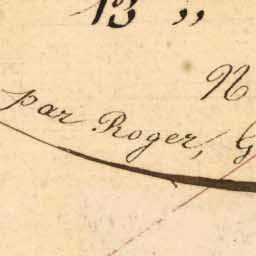 13 „
N
par Roger, G